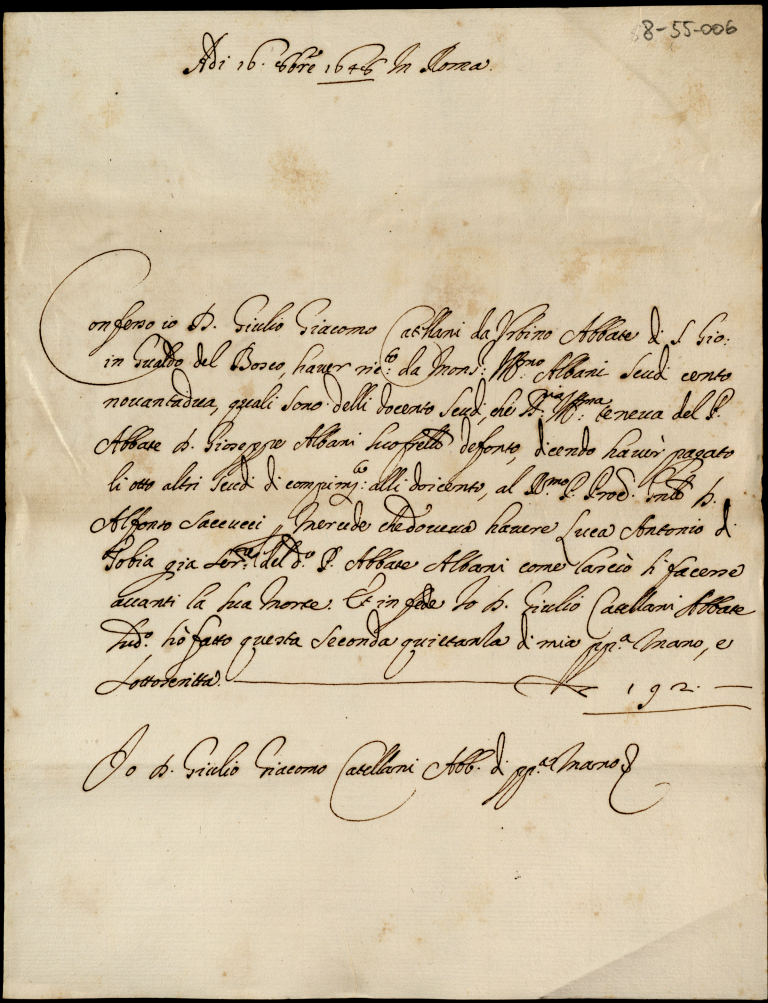 58-55-006
Adi 16. 8bre 1646 In Roma.
Confesso io D. Giulio Giacomo Catellani da Urbino Abbate di S. Gio:
in Gualdo del Bosco, haver rice:to da Mons: Ill:mo Albani scudi cento
novantadua, quali sono delli docento scudi, che S.ria Ill:ma teneva del P.
Abbate D. Gioseppe Albani suo frello defonto, dicendo havèr pagato
li otto altri scudi di compim:to alli doicento, al R.mo P. Prod. Gnle D.
Alfonso Saccucci p mercede che doveva havere Luca Antonio di
Tobia gia ser:re del d:o P. Abbate Albani come lasciò si facesse
avanti la sua morte. Et in fede Io D. Giulio Catellani Abbate
sud.o hò fatto questa seconda quietanza di mia pp.a mano, e
sottoscritta. 192.
Io D. Giulio Giacomo Catellani Abb. di pp.a mano